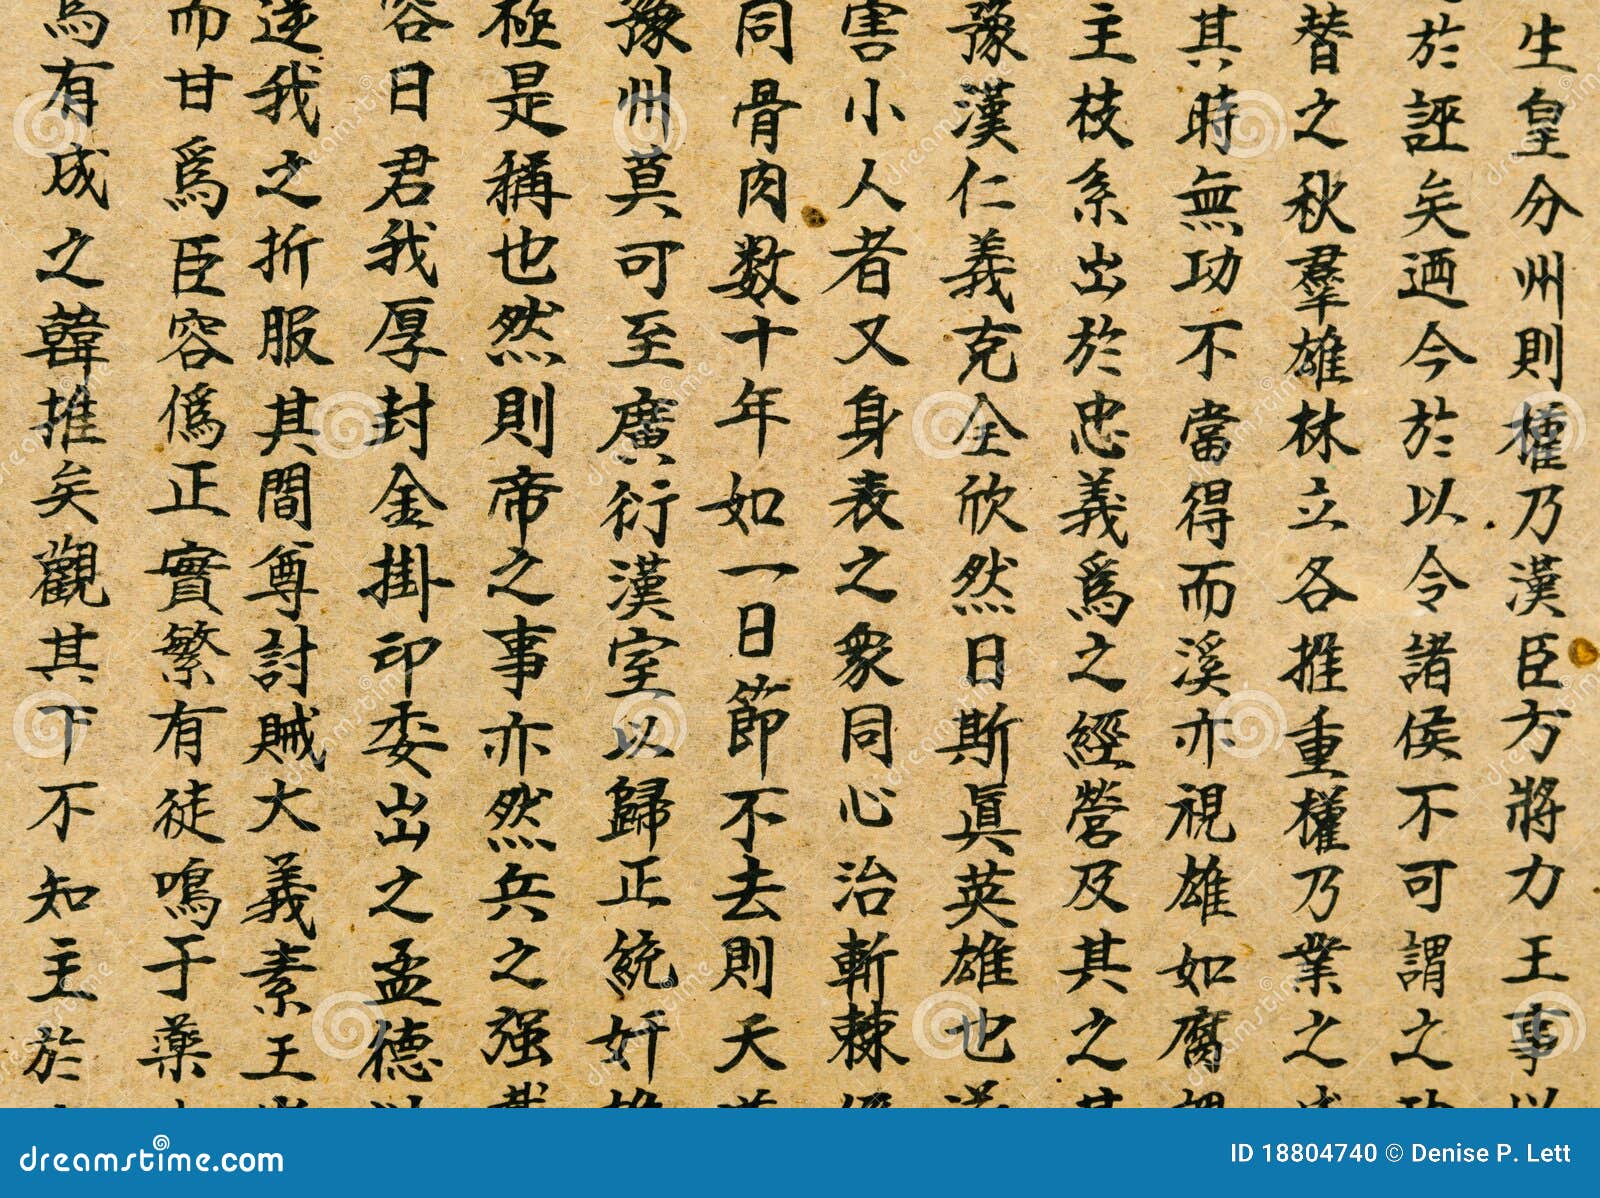 生皇分州則權乃漢臣方將力王事
於誣矣迺今於以令諸侯不可謂之
替之秋羣雄林立各推重權乃業之
其時無功不當得而溪亦視雄如腐
主枝系出於忠義爲之經營及其之
豫漢仁義克全欣然日斯眞英雄也
害小人者又身表之衆同心治斬棘
同骨肉数十年如一日節不去則天
豫州莫可至廣衍漢室以歸正統奸
極是稱也然則帝之事亦然兵之强
容日君我厚封金掛印委出之孟德
逆我之折服其間尊討賊大義素王
而甘爲臣容僞正實繁有徒鳴于藥
爲有成之韓推矣觀其下不知主於
dreamstime.com
ID 18804740 © Denise P. Lett